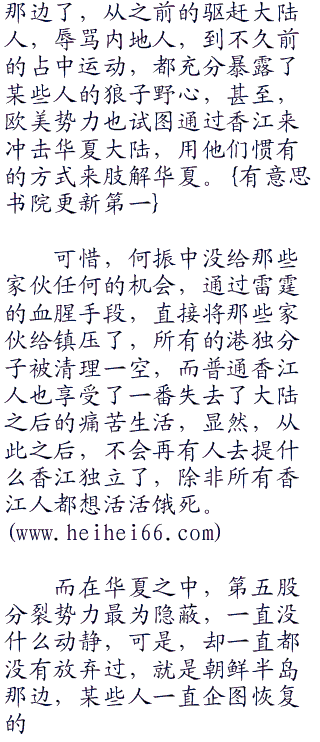 那边了，从之前的驱赶大陆
人，辱骂内地人，到不久前
的占中运动，都充分暴露了
某些人的狼子野心，甚至，
欧美势力也试图通过香江来
冲击华夏大陆，用他们惯有
的方式来肢解华夏。{有意思
书院更新第一}
可惜，何振中没给那些
家伙任何的机会，通过雷霆
的血腥手段，直接将那些家
伙给镇压了，所有的港独分
子被清理一空，而普通香江
人也享受了一番失去了大陆
之后的痛苦生活，显然，从
此之后，不会再有人去提什
么香江独立了，除非所有香
江人都想活活饿死。
(www.heihei66.com)
而在华夏之中，第五股
分裂势力最为隐蔽，一直没
什么动静，可是，却一直都
没有放弃过，就是朝鲜半岛
那边，某些人一直企图恢复
的